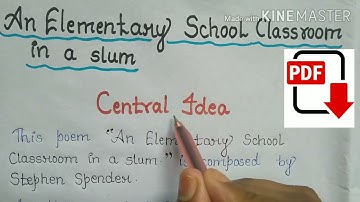 An Elementary School Classroom
Made with KINEMASTER
in a slum
PDF
Central Idea
This poem "An Elementary School
Classroom in a slum." is composed by
Stephen Spender.